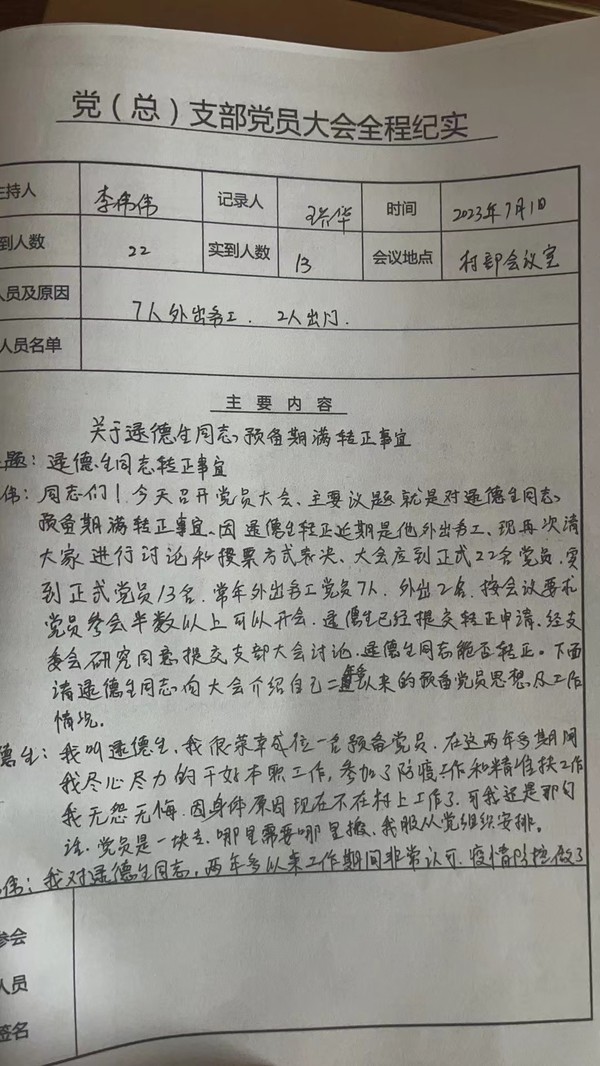 党（总）支部党员大会全程纪实
主持人 李伟伟 记录人 华 时间 2023年7月1日
到人数 22 实到人数 13 会议地点 村部会议室
人员及原因 7人外出务工. 2人出门.
人员名单
主要内容
关于逯德生同志预备期满转正事宜
题：逯德生同志转正事宜
伟：同志们！今天召开党员大会、主要议题就是对逯德生同志
预备期满转正事宜、因逯德生转正延期是他外出务工、现再次请
大家进行讨论和投票方式表决、大会应到正式22名党员.实
到正式党员13名.常年外出务工党员7人.外出2名.按会议要求
党员参会半数以上可以开会.逯德生已经提交转正申请、经支
委会研究同意提交支部大会讨论.逯德生同志能否转正。下面
请逯德生同志向大会介绍自己二年以来的预备党员思想及工作
情况。
德生：我叫逯德生、我很荣幸成位一名预备党员.在这两年多期间
我尽心尽力的干好本职工作，参加了防疫工作和精准扶工作
我无怨无悔.因身体原因现在不在村上工作了.可我还是那句
话.党员是一块专.哪里需要哪里搬、我服从党组织安排。
伟：我对逯德生同志，两年多以来工作期间非常认可.疫情防控做了
参会
人员
签名